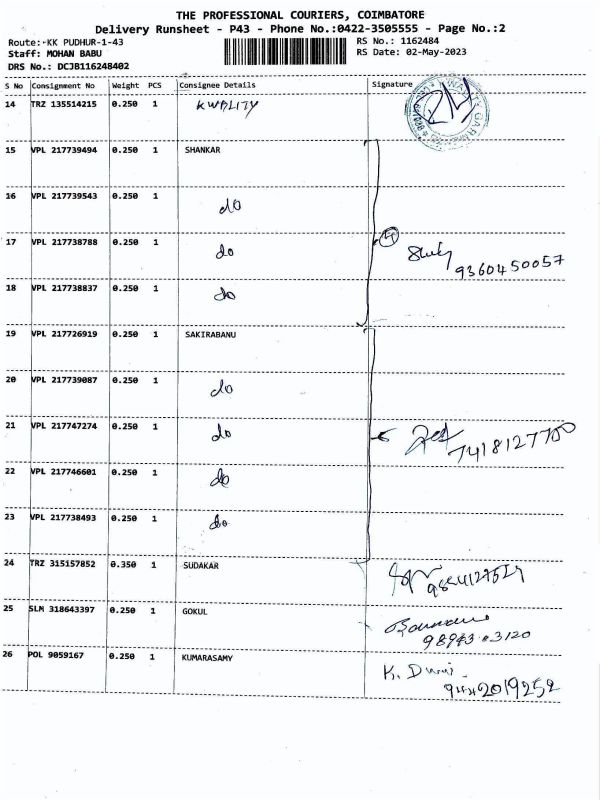 THE PROFESSIONAL COURIERS, COIMBATORE
Delivery Runsheet - P43 - Phone No.:0422-3505555 - Page No.:2
Route:-KK PUDHUR-1-43 RS No.: 1162484
Staff: MOHAN BABU RS Date: 02-May-2023
DRS No.: DCJB116248402
S No Consignment No Weight PCS Consignee Details Signature
14 TRZ 135514215 0.250 1 KWALITY
15 VPL 217739494 0.250 1 SHANKAR
16 VPL 217739543 0.250 1 do
17 VPL 217738788 0.250 1 do
9360450057
18 VPL 217738837 0.250 1 do
19 VPL 217726919 0.250 1 SAKIRABANU
20 VPL 217739087 0.250 1 do
21 VPL 217747274 0.250 1 do 7418127700
22 VPL 217746601 0.250 1 do
23 VPL 217738493 0.250 1 do
24 TRZ 315157852 0.350 1 SUDAKAR
25 SLM 318643397 0.250 1 GOKUL
26 POL 9059167 0.250 1 KUMARASAMY